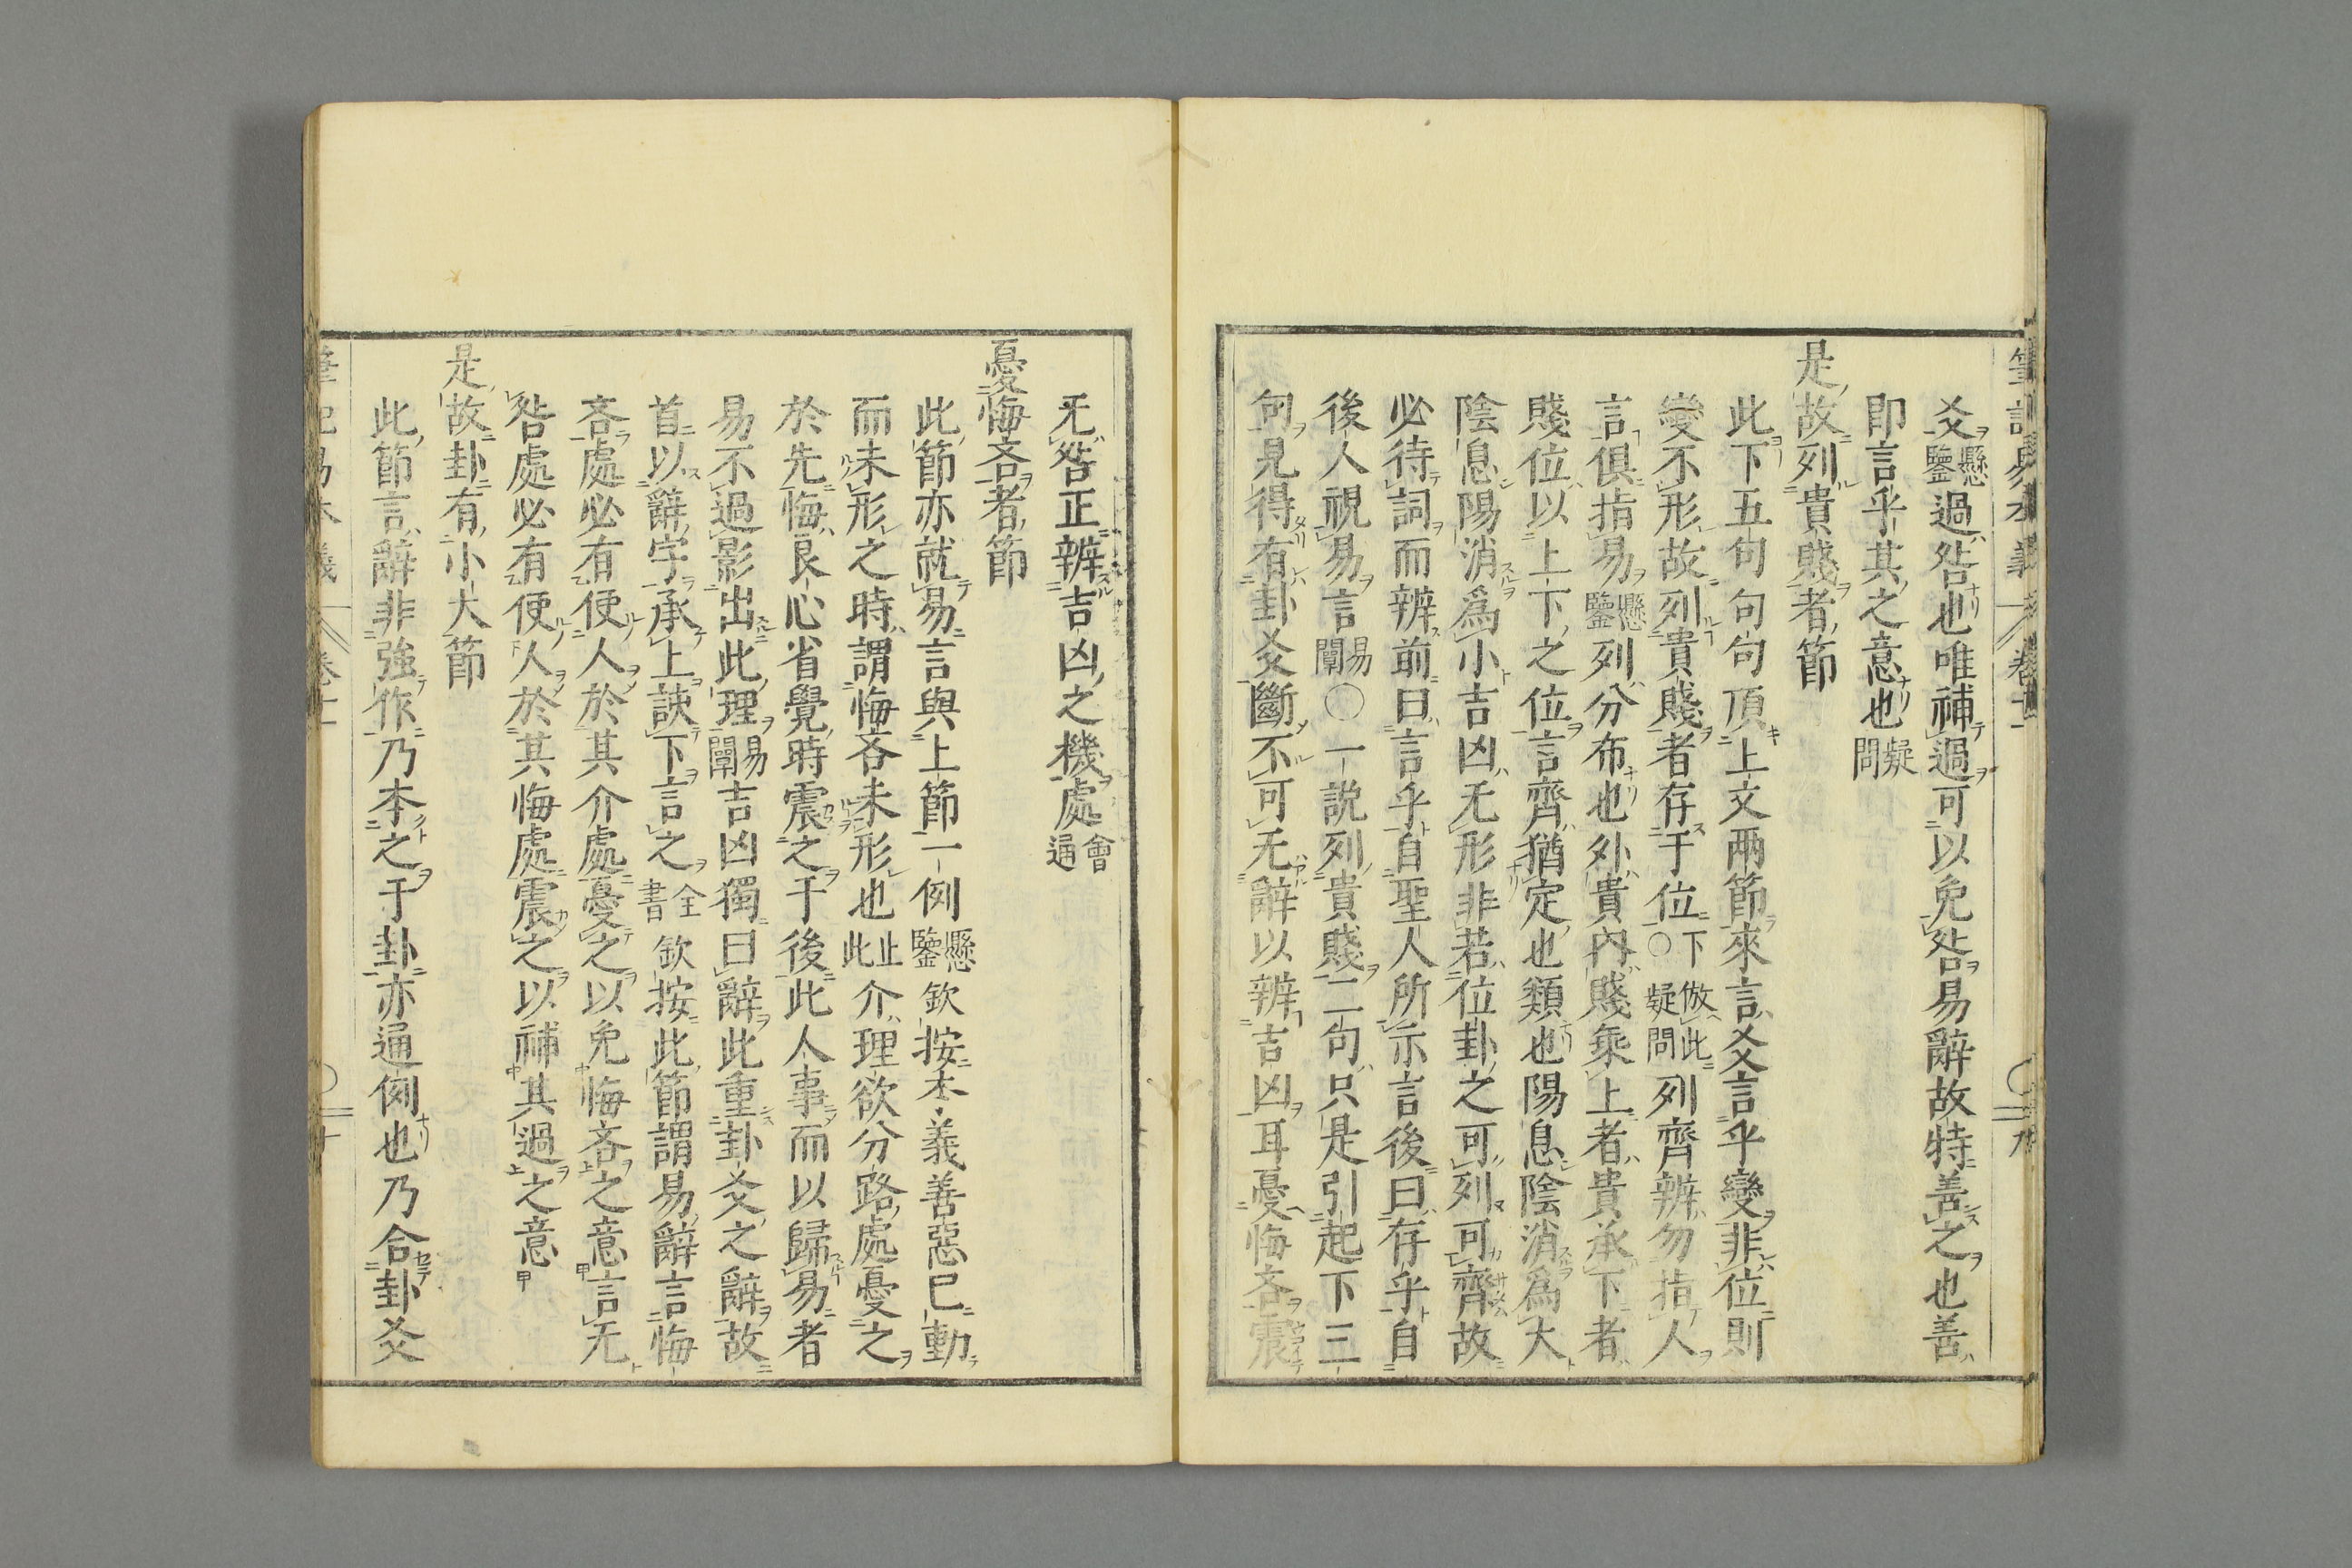 爻懸鑒過咎也唯補過可以免咎易辭故特善之也善
即言乎其之意也疑問
是故列貴賤者節
此下五句句句頂上文兩節來言爻言乎變非位則
變不形故列貴賤者存于位下倣此○疑問列齊辨勿指人
言俱指易懸鑒列分布也外貴內賤乘上者貴承下者
賤位以上下之位言齊猶定也類也陽息陰消為大
陰息陽消為小吉凶无形非若位卦之可列可齊故
必待詞而辨前曰言乎自聖人所示言後曰存乎自
後人視易言易闡○一說列貴賤二句只是引起下三
句見得有卦爻斷不可无辭以辨吉凶耳憂悔吝震
无咎正辨吉凶之機處會通
憂悔吝者節
此節亦就易言與上節一例懸鑒欽按本義善惡已動
而未形之時謂悔吝未形也止此介理欲分路處憂之
於先悔良心省覺時震之于後此人事而以歸易者
易不過影出此理易闡吉凶獨曰辭此重卦爻之辭故
首以辭字承上諛下言之全書欽按此節謂易辭言悔
吝處必有使人於其介處憂之以免悔吝之意言无
咎處必有使人於其悔處震之以補其過之意
是故卦有小大節
此節言辭非強作乃本之于卦亦通例也乃合卦爻